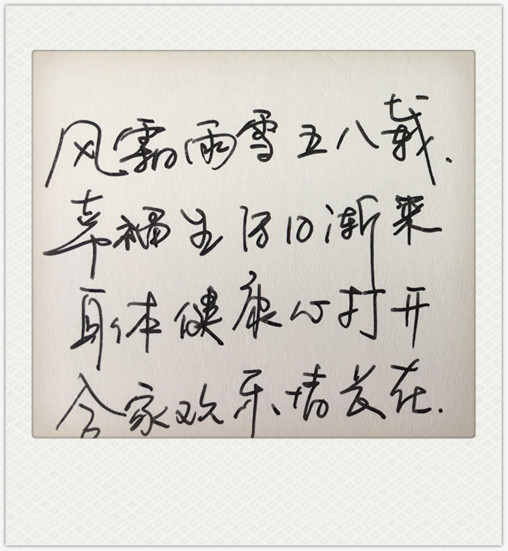 风霜雨雪五八载.
幸福生活日渐来
身体健康心打开
合家欢乐情长在.